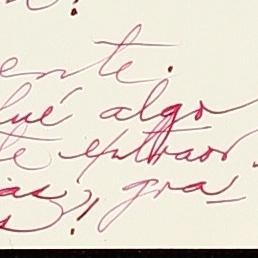 ente.
fué algo
te extraor
ias, gra-
!